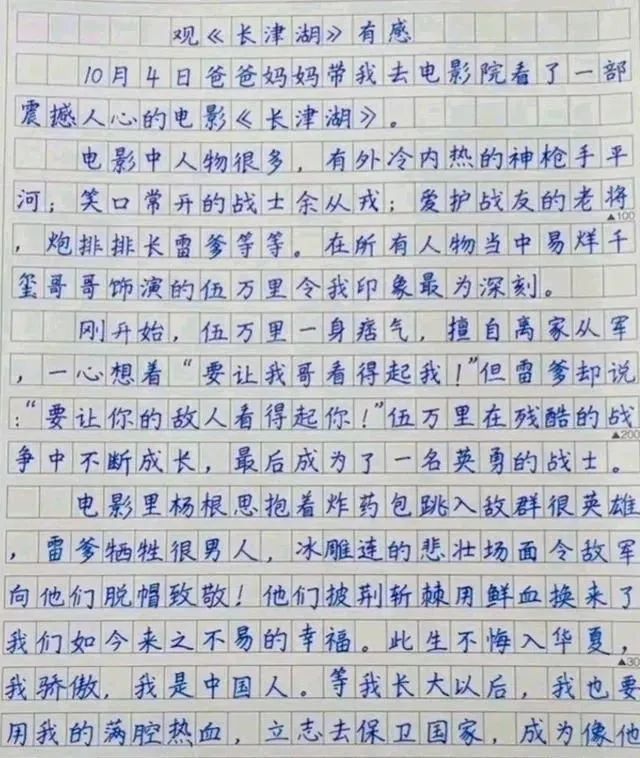 观《长津湖》有感
10月4日爸爸妈妈带我去电影院看了一部
震撼人心的电影《长津湖》。
电影中人物很多，有外冷内热的神枪手平
河；笑口常开的战士余从戎；爱护战友的老将
▲100
，炮排排长雷爹等等。在所有人物当中易烊千
玺哥哥饰演的伍万里令我印象最为深刻。
刚开始，伍万里一身痞气，擅自离家从军
，一心想着“要让我哥看得起我！”但雷爹却说
：“要让你的敌人看得起你！”伍万里在残酷的战
▲200
争中不断成长，最后成为了一名英勇的战士。
电影里杨根思抱着炸药包跳入敌群很英雄
，雷爹牺牲很男人，冰雕连的悲壮场面令敌军
向他们脱帽致敬！他们披荆斩棘用鲜血换来了
我们如今来之不易的幸福。此生不悔入华夏，
▲30
我骄傲，我是中国人。等我长大以后，我也要
用我的满腔热血，立志去保卫国家，成为像他